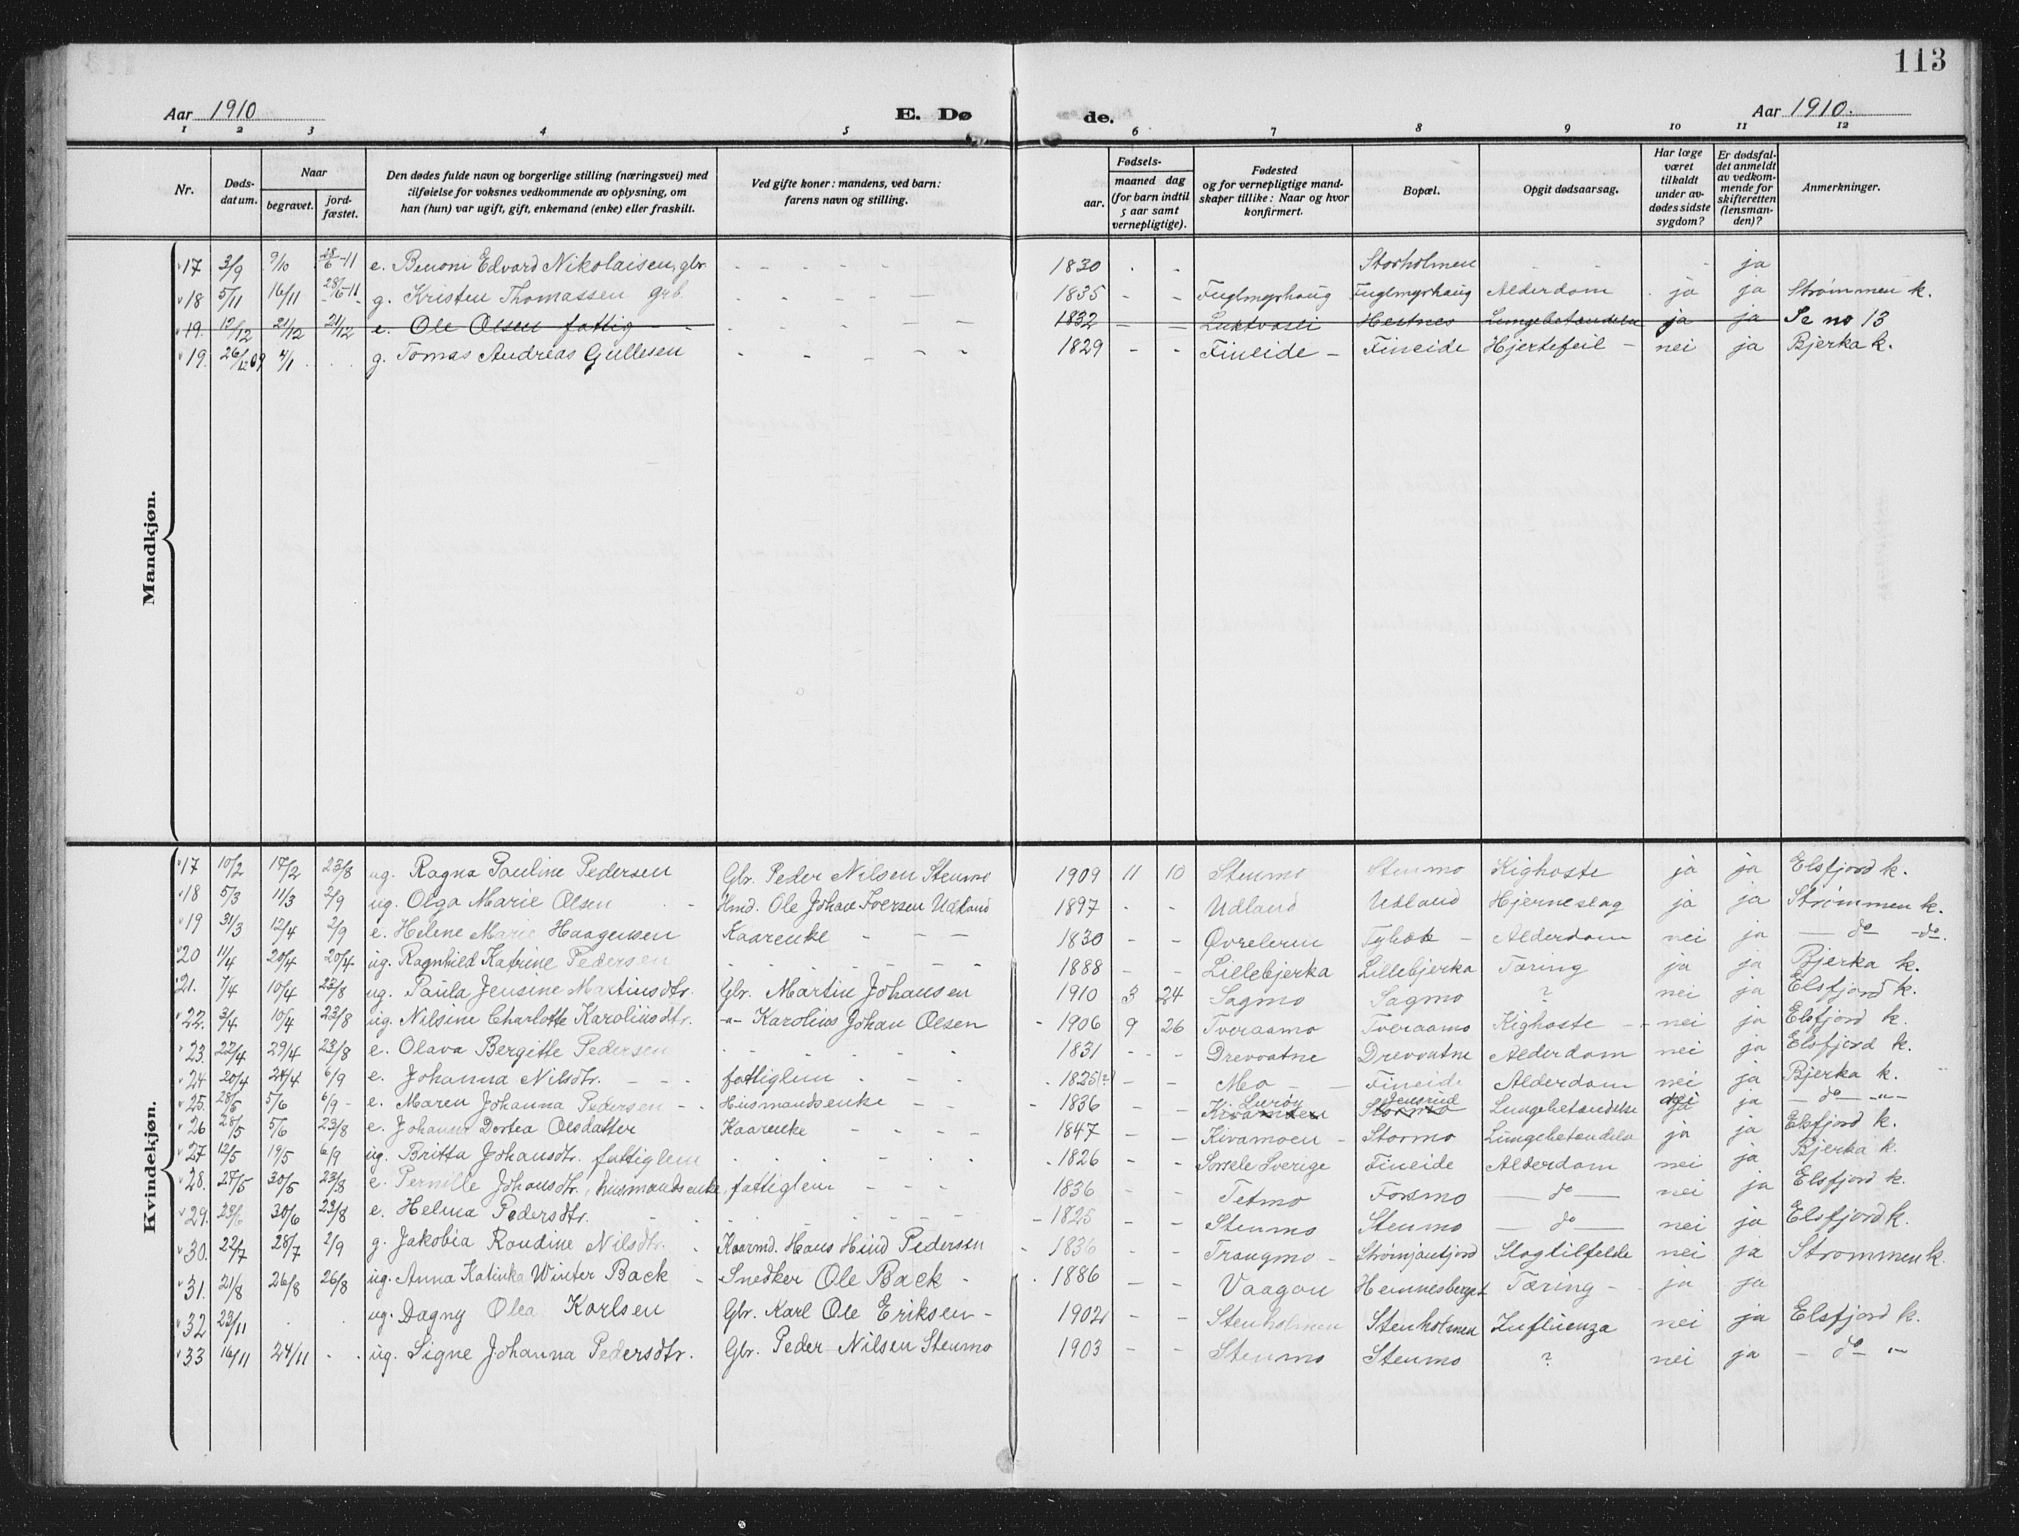 113
Aar 1910
E. Dø de.
Aar 1910.
1 2 3 4 5 6 7 8 9 10 11 12
Nr.
Døds-datum.
Naar
begravet.
jord-fæstet.
Den dødes fulde navn og borgerlige stilling (næringsvei) med
tilføielse for voksnes vedkommende av oplysning, om
han (hun) var ugift, gift, enkemand (enke) eller fraskilt.
Ved gifte koner: mandens, ved barn:
farens navn og stilling.
Fødsels-
aar.
maaned dag
(for barn indtil
5 aar samt
vernepligtige).
Fødested
og for vernepligtige mand-
skaper tillike: Naar og hvor
konfirmert.
Bopæl.
Opgit dødsaarsag.
Har læge
været
tilkaldt
under av-
dødes sidste
sygdom?
Er dødsfal-
det anmeldt
av vedkom-
mende for
skifteretten
(lensman-
den)?
Anmerkninger.
Mandkjøn.
17 3/9 9/10 28/6-11 e. Benoni Edvard Nikolaisen, gbr. - - - - - 1830 - - Storholmen - - ja
18 5/11 16/11 28/5-11 g. Kristen Thomassen grb. - - - - - 1835 - - Fuglmyrhaug Fuglmyrhaug Alderdom ja ja Strømmen k.
19. 12/12 21/12 21/12 e. Ole Olsen fattig - - - - - 1832 - - Luktvasli Hestnes Lungebetændelse ja ja Se no 13
19. 26/12 09 4/1 . . g. Tomas Andreas Gullesen - - - - - 1829 - - Fineide - Fineide Hjertefeil - nei ja Bjerka k.
Kvindekjøn.
17 10/2 17/2 23/8 ug. Ragna Pauline Pedersen Gbr. Peder Nilsen Stenmo 1909 11 10 Stenmo Stenmo Kighoste ja ja Elsfjord k.
18 5/3 11/3 2/9 ug. Olga Marie Olsen Hmd. Ole Johan Iversen Udland 1897 - - Udland Udland Hjerneslag ja ja Strømmen k.
19 31/3 12/4 2/9 e. Helene Marie Haagensen Kaarenke - - - 1830 - - Øvreleren - Alderdom nei ja - do - do.
20 11/4 20/4 20/4 ug. Ragnhild Katrine Pedersen - - - - - 1888 - - Lillebjerka Lillebjerka Tæring ja ja Bjerka k.
21. 7/4 10/4 23/8 ug. Paula Jensine Martinsdtr. Gbr. Martin Johansen 1910 3 24 Sagmo Sagmo ? nei ja Elsfjord k.
22. 3/4 10/4 23/8 ug. Nilsine Charlotte Karoliusdtr. -"- Karolius Johan Olsen - 1906 9 26 Tveraamo Tveraamo Kighoste - nei ja Elsfjord k.
23. 22/4 29/4 23/8 e. Olava Bergitte Pedersen - - - - - 1831 - - Drevvatne Drevvatne Alderdom nei ja Elsfjord k.
24 20/4 24/4 6/9 e. Johanna Nilsdtr. - - fattiglem - - - 1825 - - Mo - - Fineide Alderdom nei ja Bjerka k.
25. 28/5 5/6 6/9 - e. Maren Johanna Pedersen - - Husmandsenke - - - 1836 - - Kivamoen Lurøy Stormo Jensrud Lungebetændelse nei ja - do - "-
26 28/5 5/6 23/8 e. Johanna Dortea Olsdatter Kaarenke - - - - 1847 - - Kivamoen - Stormo Lungebetændelse ja ja Elsfjord k.
27 12/5 19/5 6/9 ug. Britta Johansdtr. fattiglem - - - - - 1826 - - Sorsele Sverige Fineide Alderdom nei ja Bjerka k.
28. 27/5 30/5 23/8 e. Pernille Johansdtr., husmandsenke, fattiglem - - - 1836 - - Tetmo Forsmo - do - nei ja Elsfjord k.
29. 23/6 30/6 23/8 e. Helma Pedersdtr. - - - - - 1825 - - Stenmo Stenmo - do - nei ja Elsfjord k.
30. 22/7 28/7 2/9 g. Jakobia Rondine Nilsdtr. Kaarmd. Hans Hind Pedersen - 1836 - - Trangmo - Strømjanfjord Slagtilfelde nei ja Strømmen k.
31. 21/8 26/8 26/8 ug. Anna Katinka Winter Back - Snedker Ole Back - 1886 - - Vaagan Hemnesberget Tæring - ja ja
32 23/11 . . ug. Dagny Olea Karlsen Gbr. Karl Ole Eriksen - 1902 - - Stenholmen Stenholmen Influenza nei ja Elsfjord k.
33 16/11 24/11 - . ug. Signe Johanna Pedersdtr. Gbr. Peder Nilsen Stenmo 1903 - - Stenmo Stenmo ? nei ja - do "-